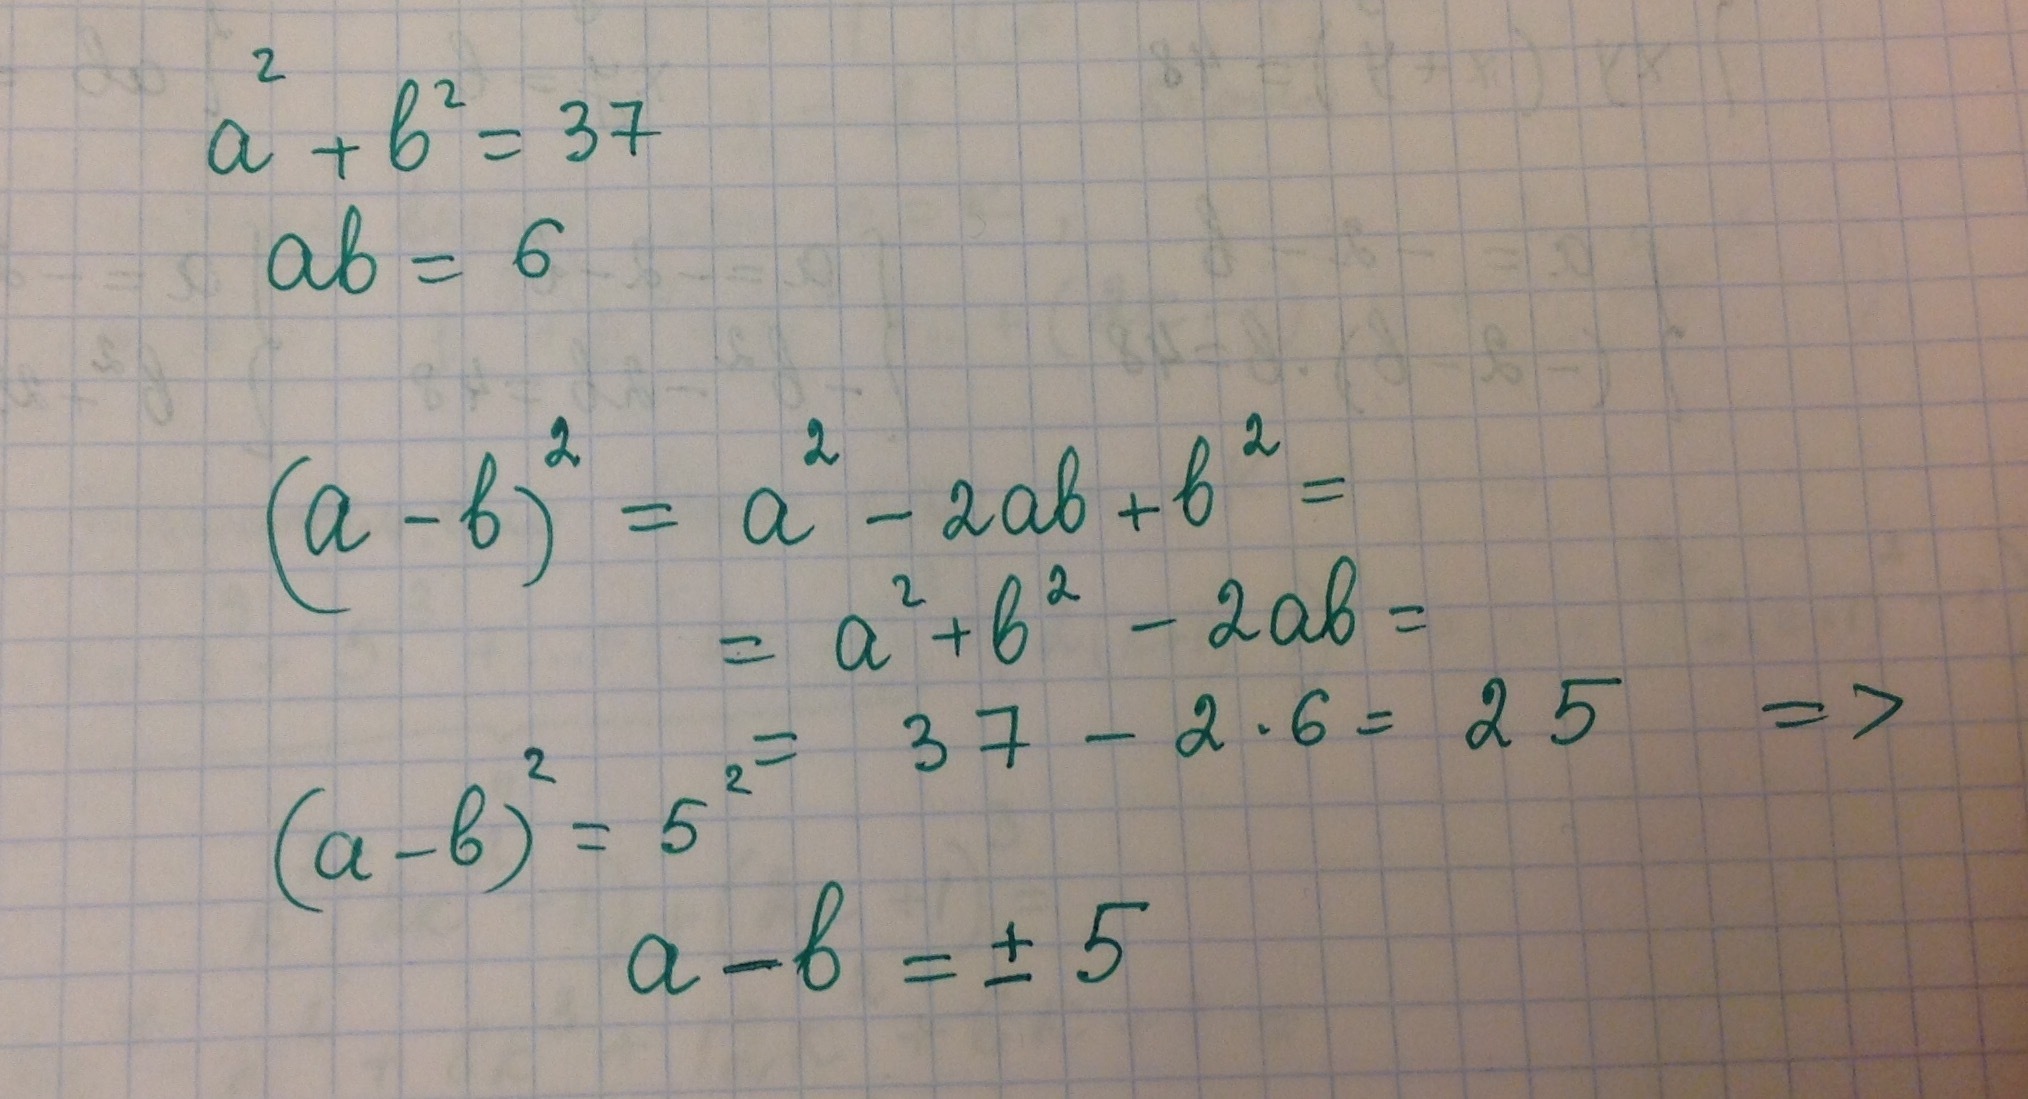 a² + b² = 37
ab = 6
(a - b)² = a² - 2ab + b² =
= a² + b² - 2ab =
= 37 - 2 · 6 = 25 =>
(a - b)² = 5²
a - b = ± 5